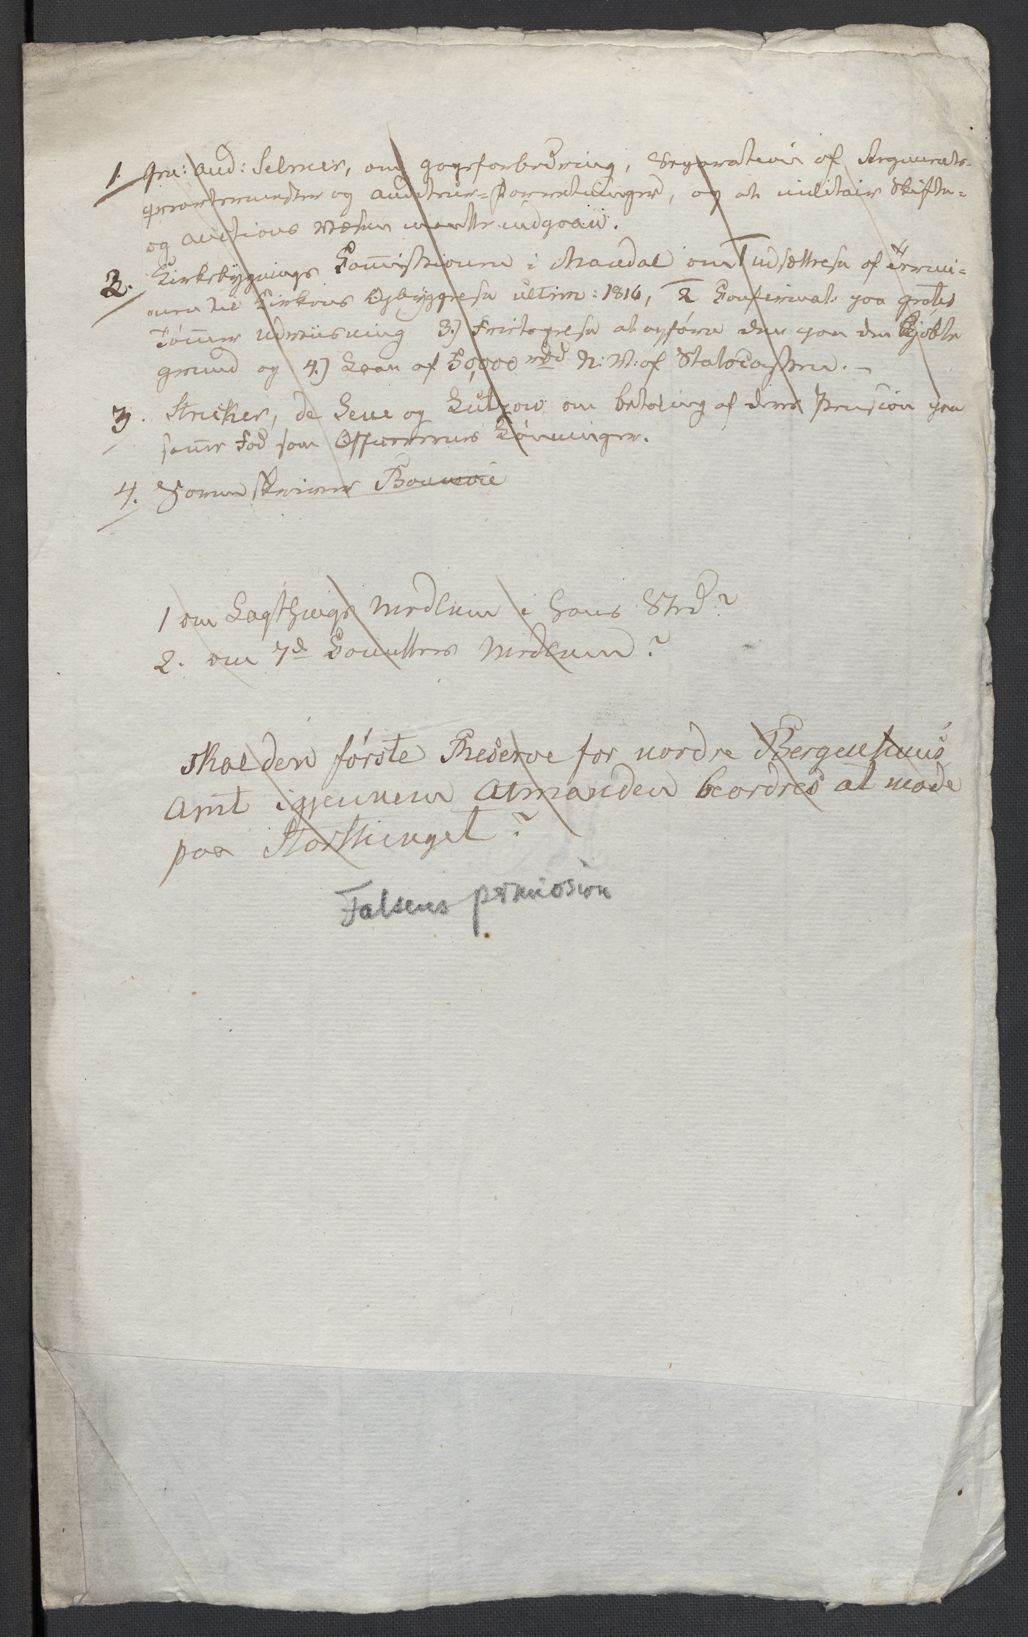 1. Gen: Aud: Selmer, om Gageforbedring, Separation af Regiments-
qvarteermester og Auditeur-Forretninger, og at militair Skifte-
og Auctions Væsen maatte indgaae.
2. Kirkebygnings Commissionen i Mandal om 1 Udsættelse af Termi-
nen til Kirkens Opbyggelse ultim: 1816, 2 Confirmat: paa gratis
Tømmer Udviisning 3) Fritagelse at opføre den paa den kjøbte
grund og 4) Laan af 50,000 rbd N. V. af Statscassen. -
3. Stricker, de Seue og Lützow om betaling af deres Pension paa
samme Fod som Officerernes Lønninger.
4. Sorenskriver
1 om Lagthings Medlem i hans Sted?
2. om 7de Comittees Medlem?
skal den første Reserve for nordre Bergenhuus
Amt igjennem Amtmanden beordres at møde
paa Storthinget?
Falsens permission